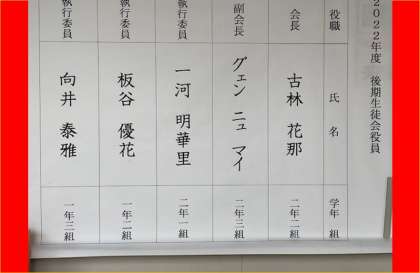 2022年度 後期生徒会役員
役職 氏名 学年 組
会長 古林 花那 二年二組
副会長 グェン ニュ マイ 二年三組
執行委員 一河 明華里 二年一組
執行委員 板谷 優花 一年二組
執行委員 向井 泰雅 一年三組